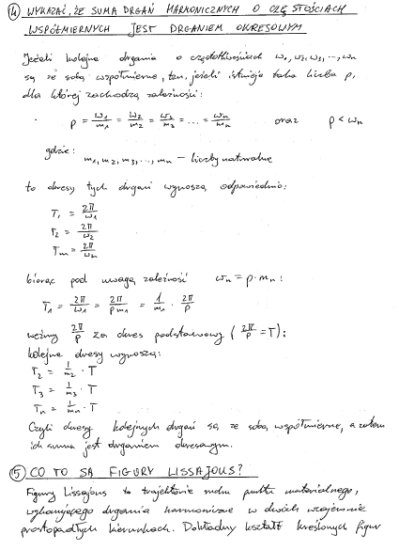 ④ WYKAZAĆ, ŻE SUMA DRGAŃ HARMONICZNYCH O CZĘSTOŚCIACH
WSPÓŁMIERNYCH JEST DRGANIEM OKRESOWYM
Jeżeli kolejne drgania o częstotliwościach ω₁, ω₂, ω₃, ..., ωn
są ze sobą współmierne, tzn. jeżeli istnieje taka liczba p,
dla której zachodzą zależności:
p = ω₁/m₁ = ω₂/m₂ = ω₃/m₃ = ... = ωn/mn oraz p < ωn
gdzie:
m₁, m₂, m₃, ..., mn – liczby naturalne
to okresy tych drgań wynoszą odpowiednio:
T₁ = 2π/ω₁
T₂ = 2π/ω₂
Tn = 2π/ωn
biorąc pod uwagę zależność ωn = p·mn:
T₁ = 2π/ω₁ = 2π/pm₁ = 1/m₁ · 2π/p
weźmy 2π/p za okres podstawowy (2π/p = T);
kolejne okresy wynoszą:
T₂ = 1/m₂ · T
T₃ = 1/m₃ · T
Tn = 1/mn · T
Czyli okresy kolejnych drgań są ze sobą współmierne, a zatem
ich suma jest drganiem okresowym.
⑤ CO TO SĄ FIGURY LISSAJOUS?
Figury Lissajous to trajektorie ruchu punktu materialnego,
wykonującego drgania harmoniczne w dwóch wzajemnie
prostopadłych kierunkach. Dokładny kształt kreślonych figur